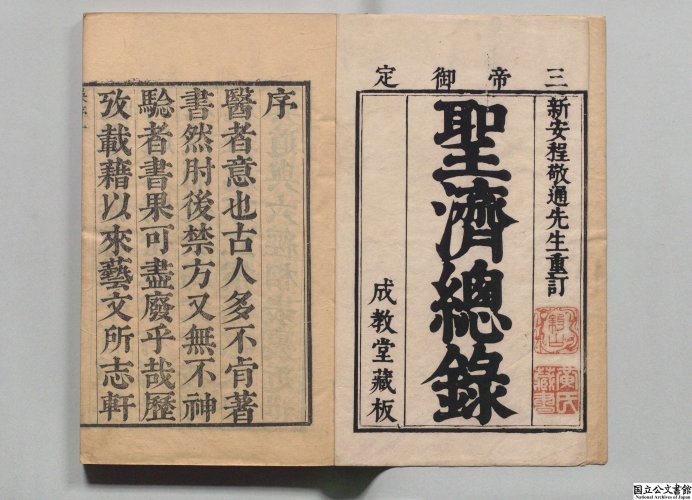 三帝御定
新安程敬通先生重訂
聖濟總錄
成教堂藏板
黄氏藏書
序
醫者意也古人多不肯著
書然肘後禁方又無不神
驗者書果可盡廢乎哉歷
攷載藉以來藝文所志軒
国立公文書館
National Archives of Japan